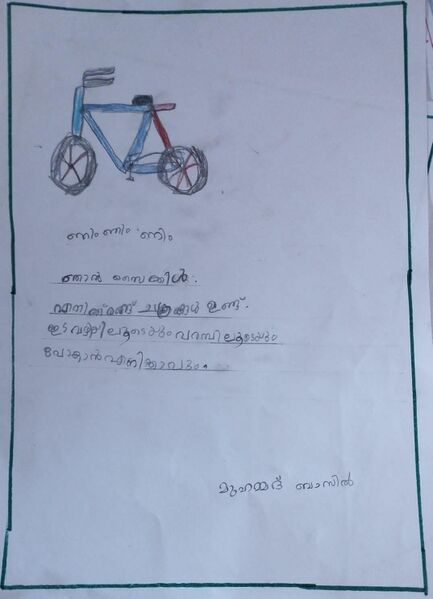 ണിം ണിം ണിം
ഞാൻ സൈക്കിൾ.
എനിക്ക് രണ്ട് ചക്രങ്ങൾ ഉണ്ട്.
ഇടവഴിയിലൂടെയും പറമ്പിലൂടെയും
പോകാൻ എനിക്കാവും.
മുഹമ്മദ് ബാസിൽ